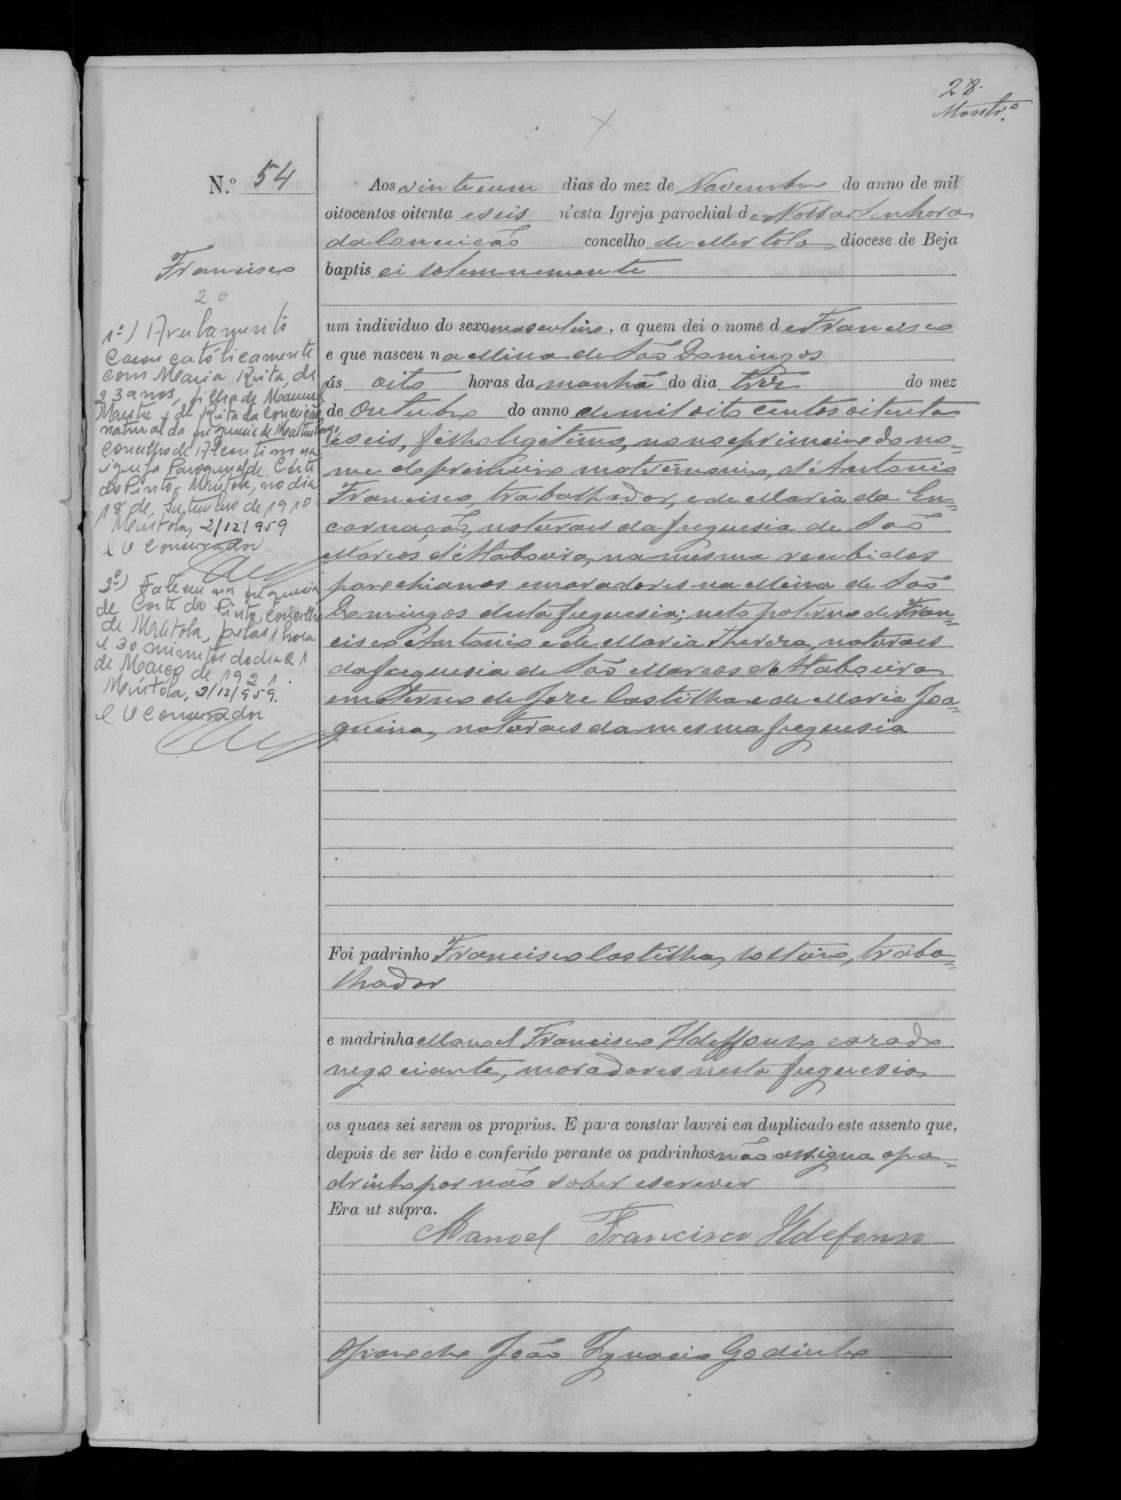 28.
Montr.º
N.º 54
Francisco
2º
1º) Averbamento
Casou catolicamente
com Maria Rita, de
23 anos, filha de Manuel
e de Rita da Conceição,
natural da freguesia de
concelho de Alcoutim na
igreja Paroquial de Corte
do Pinto, Mértola, no dia
18 de Setembro de 1910.
Mértola, 2/12/959
O Conservador
2º) Faleceu na freguesia
de Corte do Pinto, concelho
de Mértola, pelas 1 hora
e 30 minutos do dia 21
de Março de 1921.
Mértola, 2/12/959.
O Conservador
Aos vinte e um dias do mez de Novembro do anno de mil
oitocentos oitenta e seis n'esta Igreja parochial de Nossa Senhora
da Conceição concelho de Mertola, diocese de Beja
baptisei solemnemente
um individuo do sexo masculino, a quem dei o nome de Francisco
e que nasceu na Mina de São Domingos
ás oito horas da manhã do dia trez do mez
de Outubro do anno de mil oito centos oitenta
e seis, filho legitimo, nono e primeiro do no-
me do primeiro matrimonio, d'Antonio
Francisco, trabalhador, e de Maria da En-
carnação, naturaes da freguesia de São
Marcos d'Ataboeira, na mesma recebidos
parochianos e moradores na Mina de São
Domingos desta freguesia; neto paterno de Fran-
cisco Antonio e de Maria Thereza, naturaes
da freguesia de São Marcos d'Ataboeira
e materno de José Castilho e de Maria Joa-
quina, naturaes da mesma freguesia
Foi padrinho Francisco Castilho, solteiro, traba-
lhador
e madrinha Manoel Francisco Ildeffonso casado
negociante, moradores nesta freguesia
os quaes sei serem os proprios. E para constar lavrei em duplicado este assento que,
depois de ser lido e conferido perante os padrinhos não assigna o pa-
drinho por não saber escrever
Era ut supra.
Manoel Francisco Ildefonso
O Parocho João Ignacio Godinho